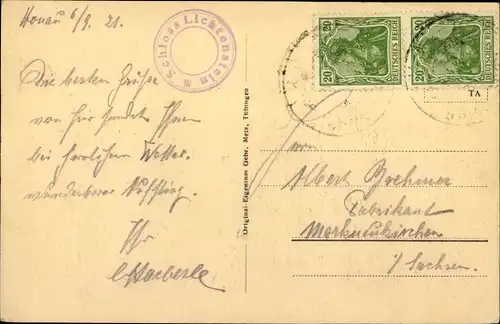 Honau 6/9. 21.
Schloss Lichtenstein
20 20
DEUTSCHES REICH DEUTSCHES REICH
TA
Die besten Grüße
von hier sendet Ihnen
bei herrlichem Wetter
wunderbarer Aufstieg.
Ihr
C Haeberle
Original-Eigentum Gebr. Metz, Tübingen
Herrn
Albert Brehmer
Fabrikant
Markneukirchen
i/Sachsen.